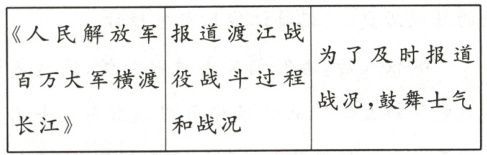 《人民解放军
百万大军横渡
长江》
报道渡江战
役战斗过程
和战况
为了及时报道
战况，鼓舞士气